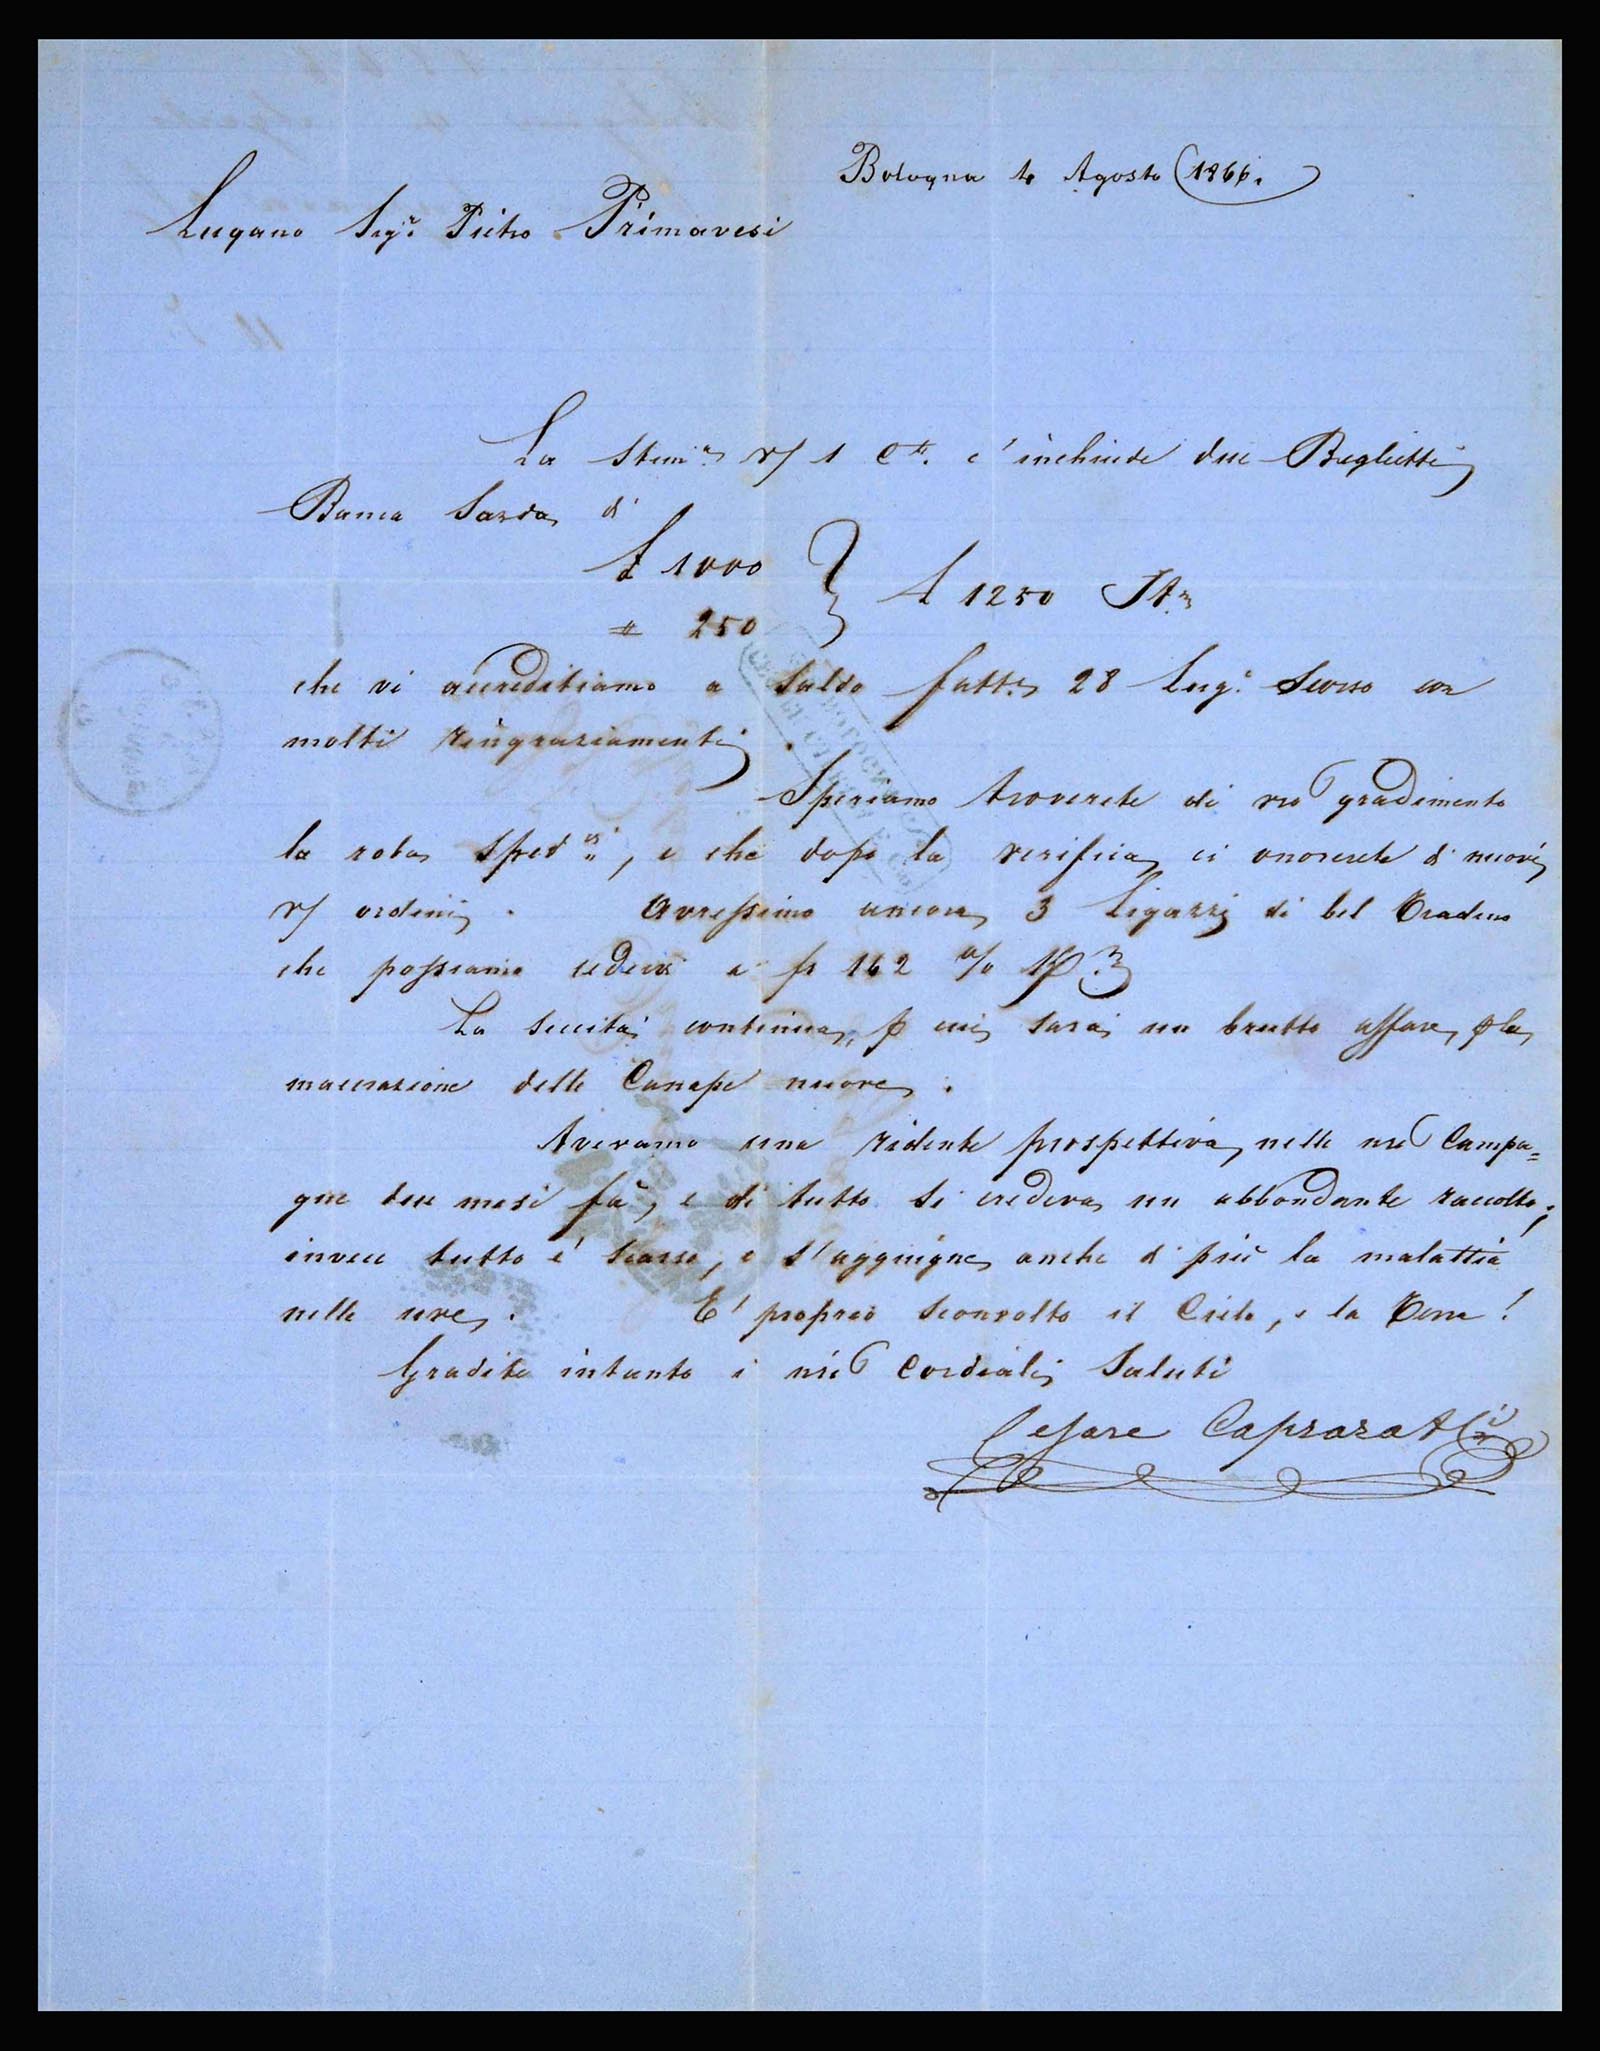 Bologna 4 Agosto 1866.
Lugano Sigr. Pietro Primavesi
La Stima. v/ 1 Ct. c'inchiude due Biglietti
Banca Sarda di
£ 1000
" 250
£ 1250 Itne
che vi accreditiamo a Saldo fatta. 28 Lugo. Scorso con
molti ringraziamenti.
Speriamo troverete di vro gradimento
la roba sped, e che dopo la verifica ci onorerete di nuovi
v/ ordini. Avressimo ancora 3 Ligazzi di bel
che possiamo cedervi a fr 162 %
La siccità continua, p cui sarà un brutto affare, p la
macerazione delle Canape nuove.
Avevamo una ridente prospettiva nelle nre Campa=
gne due mesi fà, e di tutto si credeva un abbondante raccolto;
invece tutto è scarso, e s'aggiugne anche di più la malattia
nelle uve. E' proprio sconvolto il Cielo, e la Terra!
Gradite intanto i nri Cordiali Saluti
Cesare Capraratti
BOLOGNA